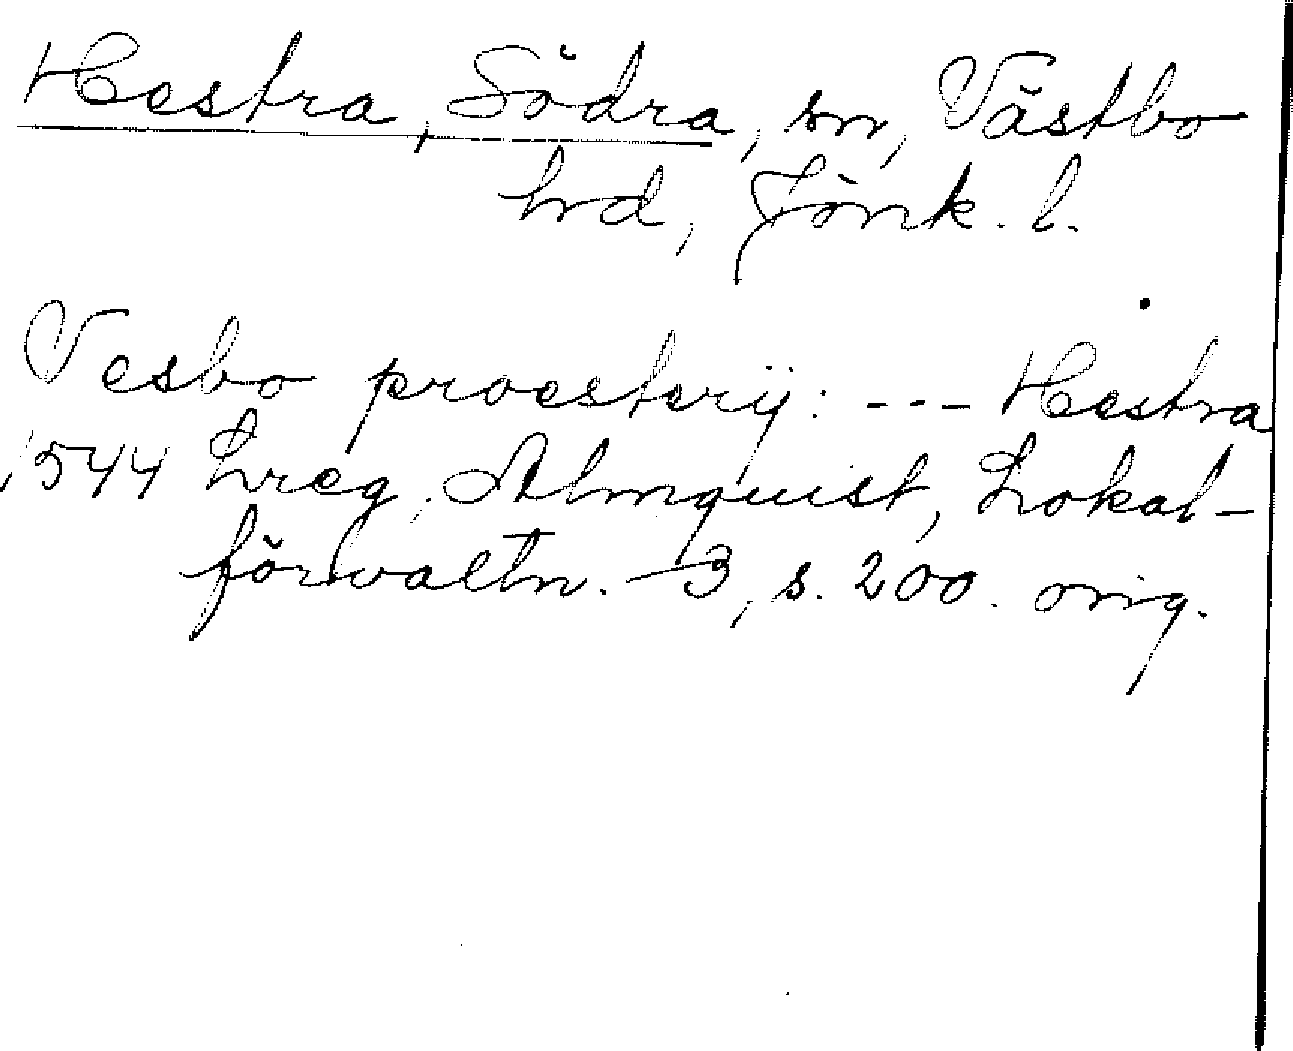 Hestra, Södra, sn, Västbo
hrd, Jönk. l.
Vesbo proesterij: --- Hestra
1544 Lreg, Almquist, Lokal-
förvaltn. 3, s. 200. orig.